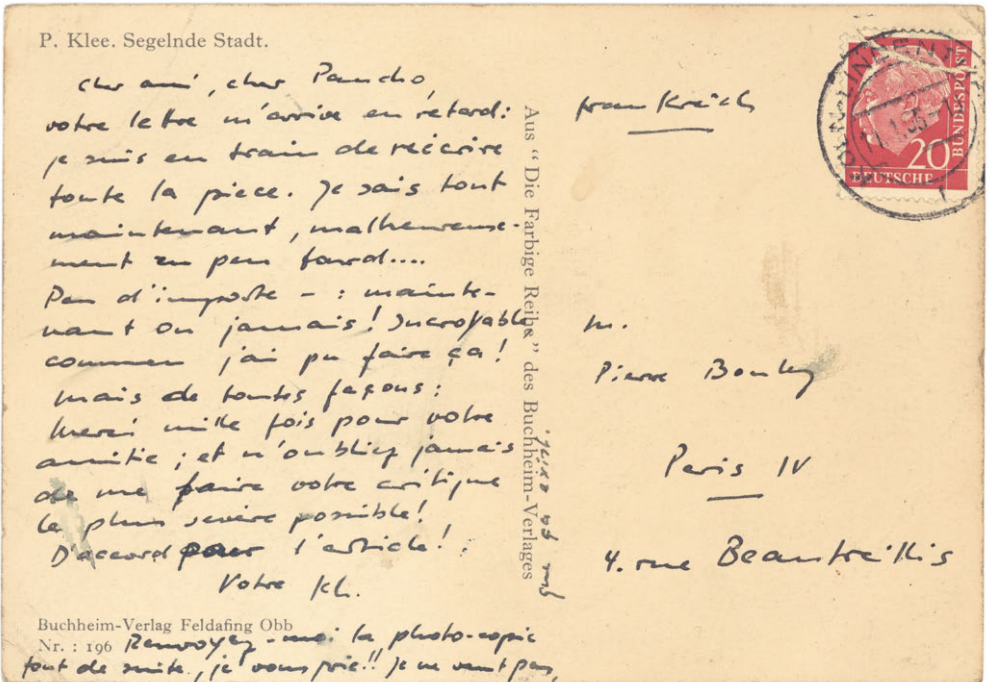 P. Klee. Segelnde Stadt.
cher ami, cher Pancho,
votre lettre m'arrive en retard:
je suis en train de réécrire
toute la pièce. Je sais tout
maintenant, malheureuse-
ment un peu tard....
Peu d'importe - : mainte-
nant ou jamais! Incroyable
comment j'ai pu faire ça!
mais de toutes façons:
Merci mille fois pour votre
amitié; et n'oubliez jamais
de me faire votre critique
le plus sevère possible!
D'accord pour l'article!
Votre Kh.
Buchheim-Verlag Feldafing Obb
Nr. : 196
Renvoyez-moi la photo-copie
tout de suite, je vous prie!! Je ne veut pas,
Aus "Die Farbige Reihe" des Buchheim-Verlages
frankreich
M.
Pierre Boulez
Paris IV
4. rue Beautreillis
20
DEUTSCHE
BUNDESPOST